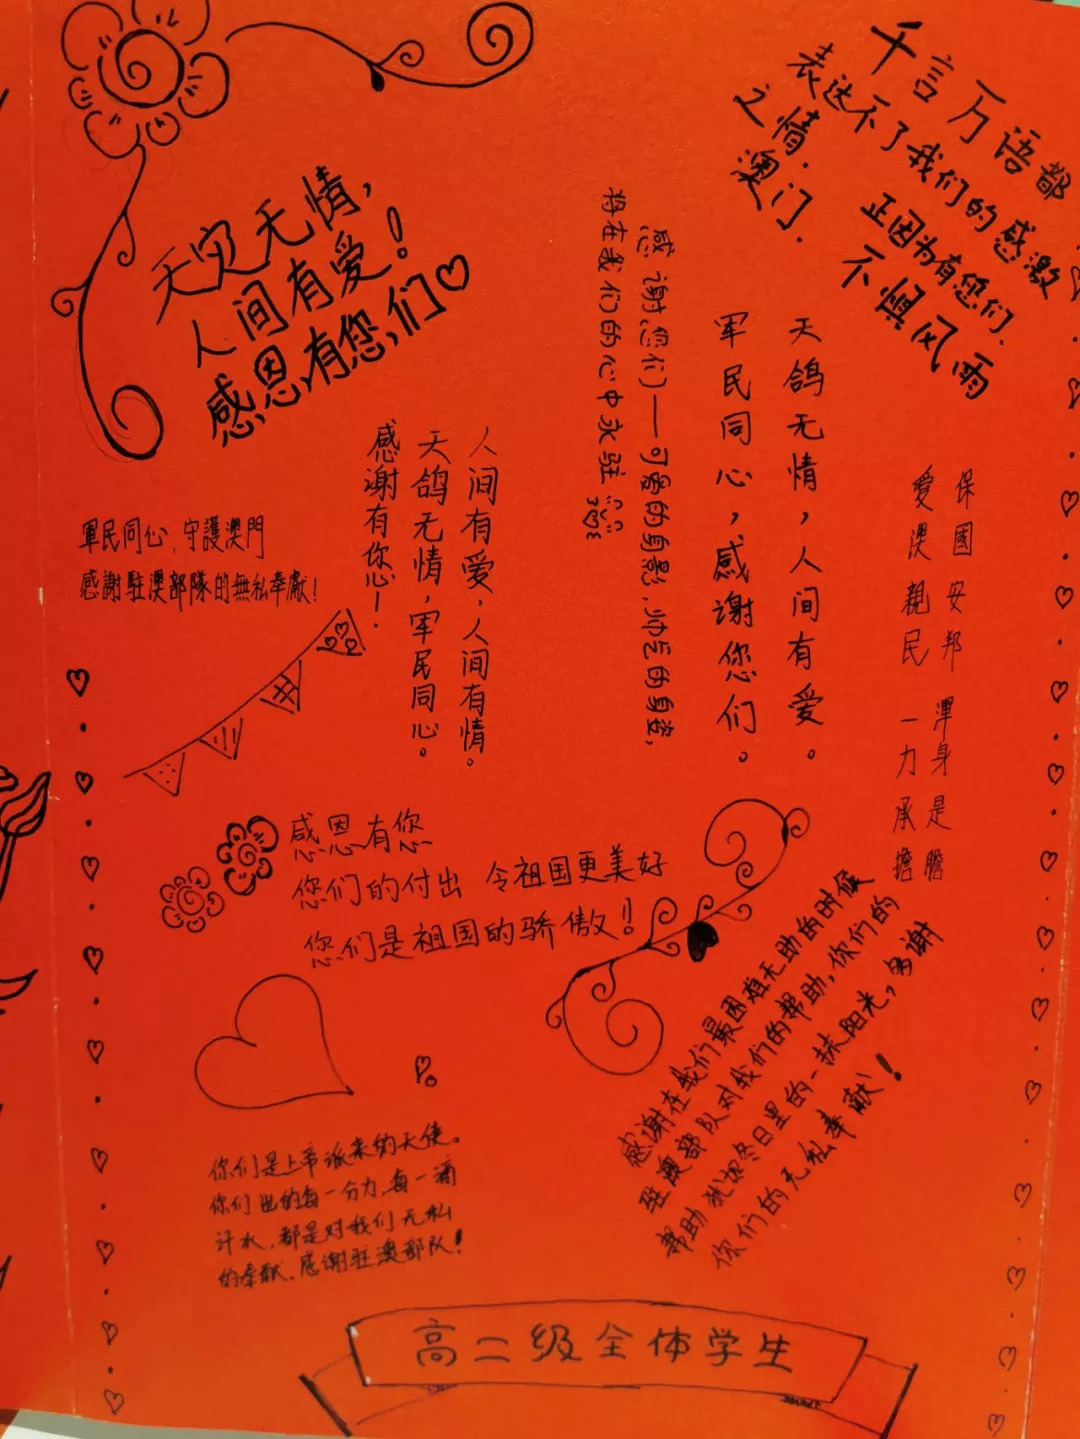 天灾无情，
人间有爱！
感恩有您们
千言万语都
表达不了我们的感激
之情.
正因为有您们.
澳门.
不惧风雨
感谢(您们)—可爱的身影、帅气的身姿,
将在我们的心中永驻
天鸽无情，人间有爱。
军民同心，感谢您们。
保國安邦 渾身是膽
愛澳親民 一力承擔
人间有爱，人间有情。
天鸽无情，军民同心。
感谢有你心！
軍民同心,守護澳門
感謝駐澳部隊的無私奉獻!
感恩有您
您们的付出 令祖国更美好
您们是祖国的骄傲!
感谢在我们最困难无助的时候
驻澳部队对我们的帮助,你们的
帮助犹如冬日里的一抹阳光,多谢
你们的无私奉献!
你们是上帝派来的天使。
你们出的每一分力,每一滴
汗水,都是对我们无私
的奉献.感谢驻澳部队!
高二级全体学生